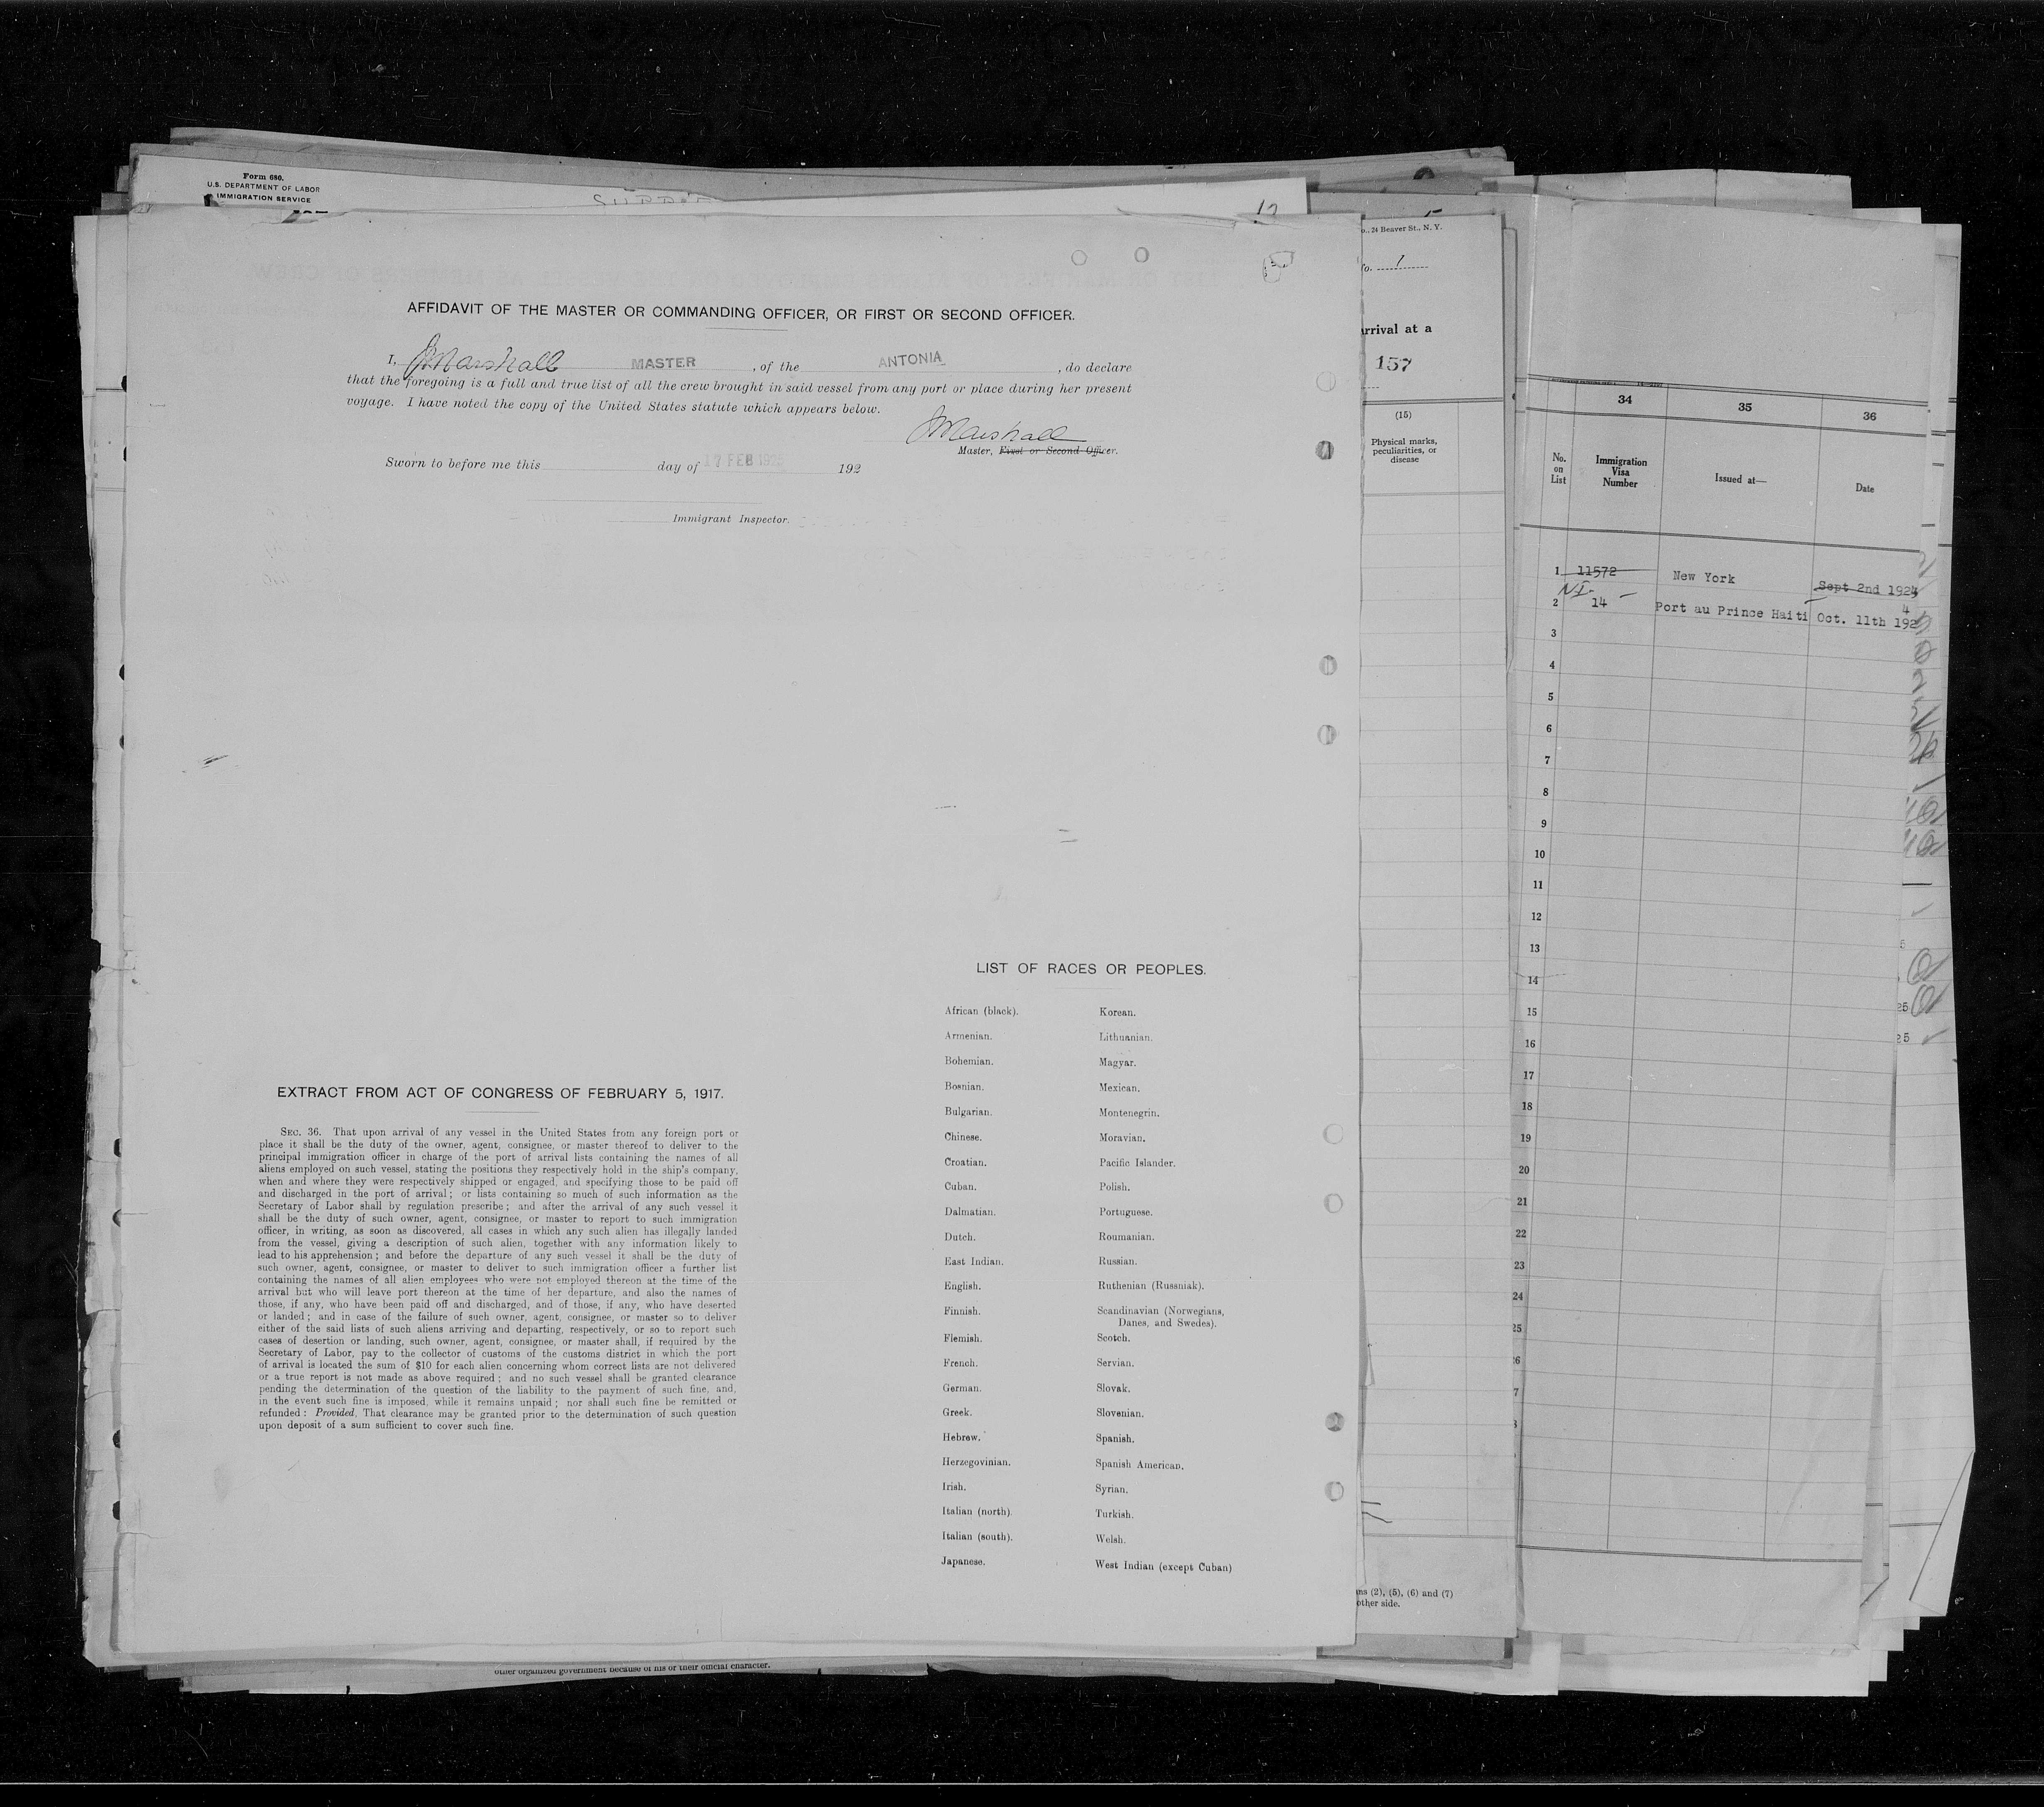 Form 680.
U.S. DEPARTMENT OF LABOR
IMMIGRATION SERVICE
12
AFFIDAVIT OF THE MASTER OR COMMANDING OFFICER, OR FIRST OR SECOND OFFICER.
I, JMarshall MASTER, of the ANTONIA, do declare
that the foregoing is a full and true list of all the crew brought in said vessel from any port or place during her present
voyage. I have noted the copy of the United States statute which appears below.
JMarshall
Master, First or Second Officer.
Sworn to before me this day of 17 FEB 1925 192
Immigrant Inspector.
EXTRACT FROM ACT OF CONGRESS OF FEBRUARY 5, 1917.
SEC. 36. That upon arrival of any vessel in the United States from any foreign port or
place it shall be the duty of the owner, agent, consignee, or master thereof to deliver to the
principal immigration officer in charge of the port of arrival lists containing the names of all
aliens employed on such vessel, stating the positions they respectively hold in the ship's company,
when and where they were respectively shipped or engaged, and specifying those to be paid off
and discharged in the port of arrival; or lists containing so much of such information as the
Secretary of Labor shall by regulation prescribe; and after the arrival of any such vessel it
shall be the duty of such owner, agent, consignee, or master to report to such immigration
officer, in writing, as soon as discovered, all cases in which any such alien has illegally landed
from the vessel, giving a description of such alien, together with any information likely to
lead to his apprehension; and before the departure of any such vessel it shall be the duty of
such owner, agent, consignee, or master to deliver to such immigration officer a further list
containing the names of all alien employees who were not employed thereon at the time of the
arrival but who will leave port thereon at the time of her departure, and also the names of
those, if any, who have been paid off and discharged, and of those, if any, who have deserted
or landed; and in case of the failure of such owner, agent, consignee, or master so to deliver
either of the said lists of such aliens arriving and departing, respectively, or so to report such
cases of desertion or landing, such owner, agent, consignee, or master shall, if required by the
Secretary of Labor, pay to the collector of customs of the customs district in which the port
of arrival is located the sum of $10 for each alien concerning whom correct lists are not delivered
or a true report is not made as above required; and no such vessel shall be granted clearance
pending the determination of the question of the liability to the payment of such fine, and,
in the event such fine is imposed, while it remains unpaid; nor shall such fine be remitted or
refunded: Provided, That clearance may be granted prior to the determination of such question
upon deposit of a sum sufficient to cover such fine.
LIST OF RACES OR PEOPLES.
African (black). Korean.
Armenian. Lithuanian.
Bohemian. Magyar.
Bosnian. Mexican.
Bulgarian. Montenegrin.
Chinese. Moravian.
Croatian. Pacific Islander.
Cuban. Polish.
Dalmatian. Portuguese.
Dutch. Roumanian.
East Indian. Russian.
English. Ruthenian (Russniak).
Finnish. Scandinavian (Norwegians,
Danes, and Swedes).
Flemish. Scotch.
French. Servian.
German. Slovak.
Greek. Slovenian.
Hebrew. Spanish.
Herzegovinian. Spanish American.
Irish. Syrian.
Italian (north). Turkish.
Italian (south). Welsh.
Japanese. West Indian (except Cuban)
other organized government because of his or their official character.
o., 24 Beaver St., N. Y.
No. 1
arrival at a
157
(15)
Physical marks,
peculiarities, or
disease
ns (2), (5), (6) and (7)
other side.
34 35 36
No.
on
List
Immigration
Visa
Number
Issued at—
Date
1 11572 New York Sept 2nd 1924
NI-
2 14 Port au Prince Haiti Oct. 11th 1924
3
4
5
6
7
8
9
10
11
12
13
14
15
16
17
18
19
20
21
22
23
24
25
26
7
25
25